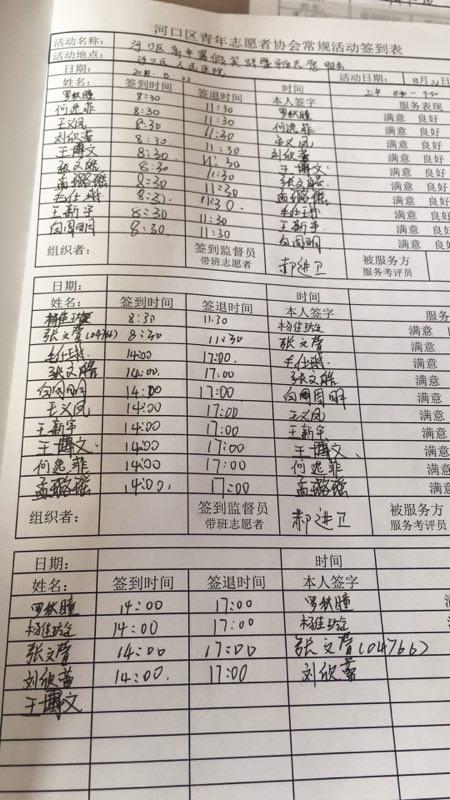 河口区青年志愿者协会常规活动签到表
活动名称: 河口区高中暑假实践暨 服务
活动地点: 河口区人民医院
日期: 活动日期: 8月22日
姓名: 签到时间 签退时间 时间 上午
本人签字 服务表现
罗秋瞳 8:30 11:30 罗秋瞳 满意 良好
何逸菲 8:30 11:30 何逸菲 满意 良好
王义凤 8:30 11:30 王义凤 满意 良好
刘欣蕾 8:30 11:30 刘欣蕾 满意 良好
王博文 8:30 11:30 王博文 满意 良好
张文皓 8:30 11:30 张文皓 满意 良好
孟璐瑶 8:30 11:30 孟璐瑶 满意 良好
8:30 11:30 满意 良好
王新宇 8:30 11:30 王新宇 满意 良好
8:30 11:30 满意 良好
组织者: 签到监督员 带班志愿者 郝进卫 被服务方 服务考评员
日期: 时间
姓名: 签到时间 签退时间 本人签字 服务
8:30 11:30 满意
张文萱(04766) 8:30 11:30 张文萱 满意
14:00 17:00 满意
张文皓 14:00 17:00 张文皓 满意
14:00 17:00 满意
王义凤 14:00 17:00 王义凤 满意
王新宇 14:00 17:00 王新宇 满意
王博文 14:00 17:00 王博文 满意
何逸菲 14:00 17:00 何逸菲 满意
孟璐瑶 14:00 17:00 孟璐瑶 满意
组织者: 签到监督员 带班志愿者 郝进卫 被服务方 服务考评员
日期: 时间
姓名: 签到时间 签退时间 本人签字
罗秋瞳 14:00 17:00 罗秋瞳
14:00 17:00
张文萱 14:00 17:00 张文萱(04766)
刘欣蕾 14:00 17:00 刘欣蕾
王博文